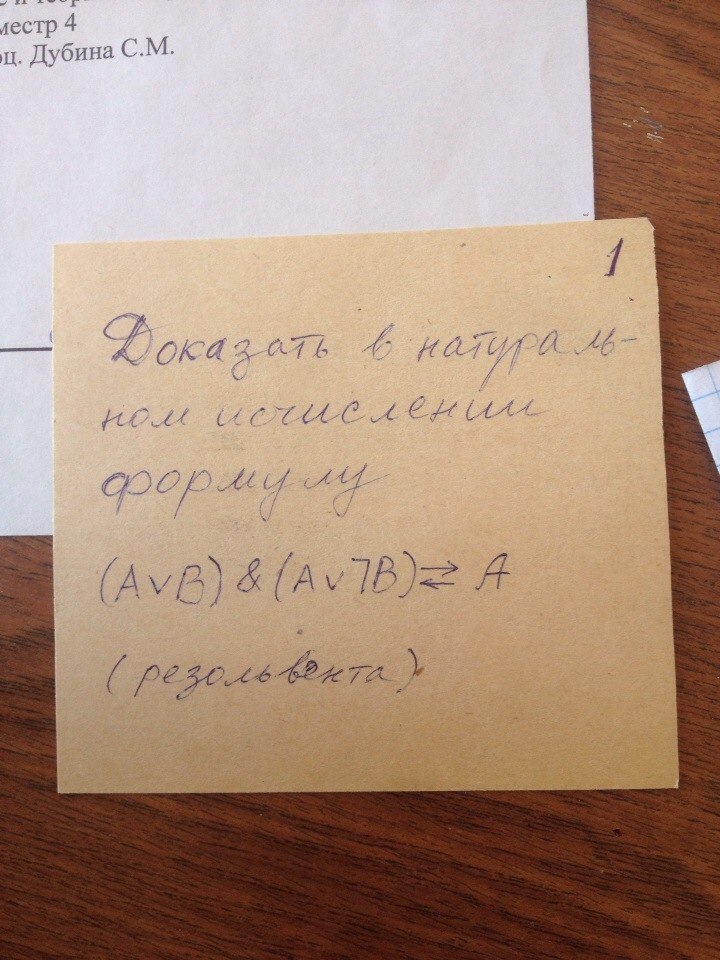 местр 4
оц. Дубина С.М.
1
Доказать в натураль-
ном исчислении
формулу
(A∨B) & (A∨⅂B) ⇄ A
(резольвента)